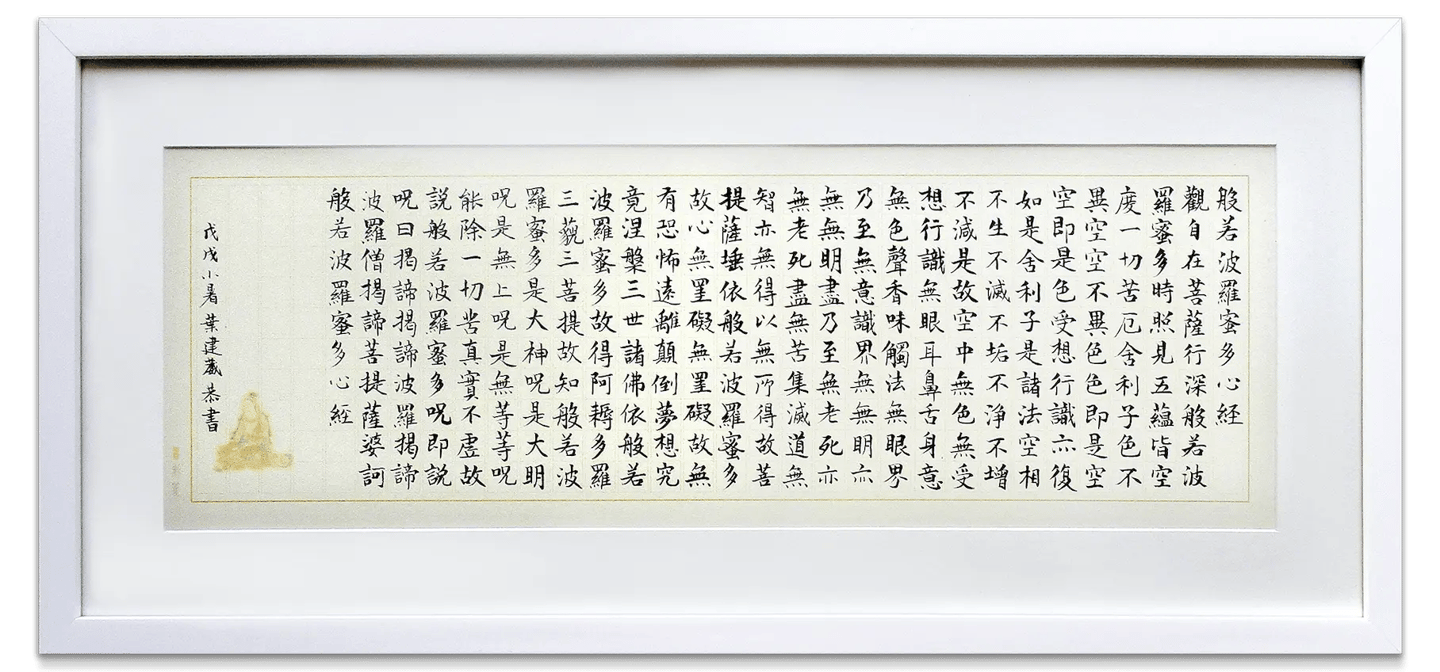 般若波羅蜜多心經
觀自在菩薩行深般若波
羅蜜多時照見五蘊皆空
度一切苦厄舍利子色不
異空空不異色色即是空
空即是色受想行識亦復
如是舍利子是諸法空相
不生不滅不垢不淨不增
不減是故空中無色無受
想行識無眼耳鼻舌身意
無色聲香味觸法無眼界
乃至無意識界無無明亦
無無明盡乃至無老死亦
無老死盡無苦集滅道無
智亦無得以無所得故菩
提薩埵依般若波羅蜜多
故心無罣礙無罣礙故無
有恐怖遠離顛倒夢想究
竟涅槃三世諸佛依般若
波羅蜜多故得阿耨多羅
三藐三菩提故知般若波
羅蜜多是大神呪是大明
呪是無上呪是無等等呪
能除一切苦真實不虛故
説般若波羅蜜多呪即説
呪曰揭諦揭諦波羅揭諦
波羅僧揭諦菩提薩婆訶
般若波羅蜜多心經
戊戌小暑葉建葳恭書